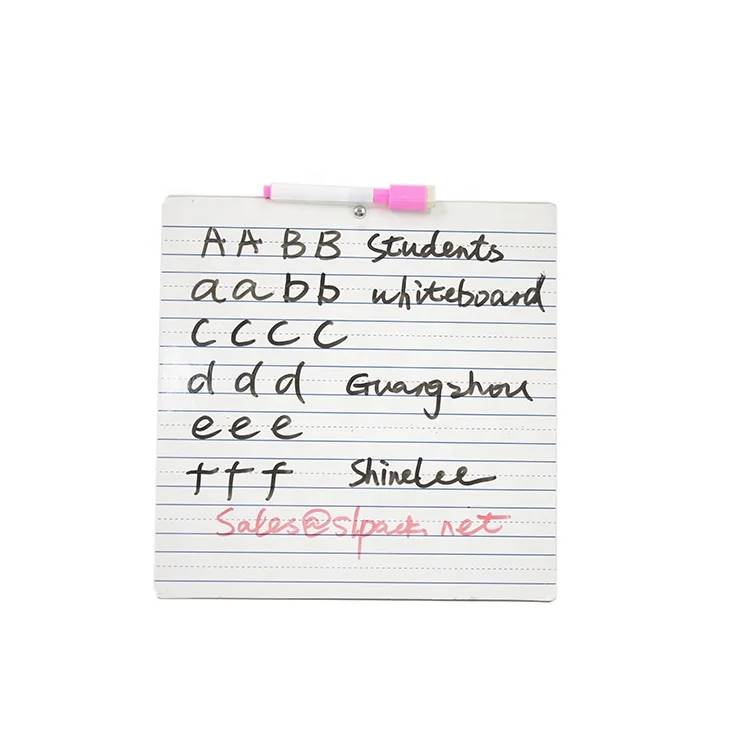 A A B B Students
a a b b whiteboard
C C C C
d d d Guangzhou
e e e
f f f Shinelee
Sales@slpack.net